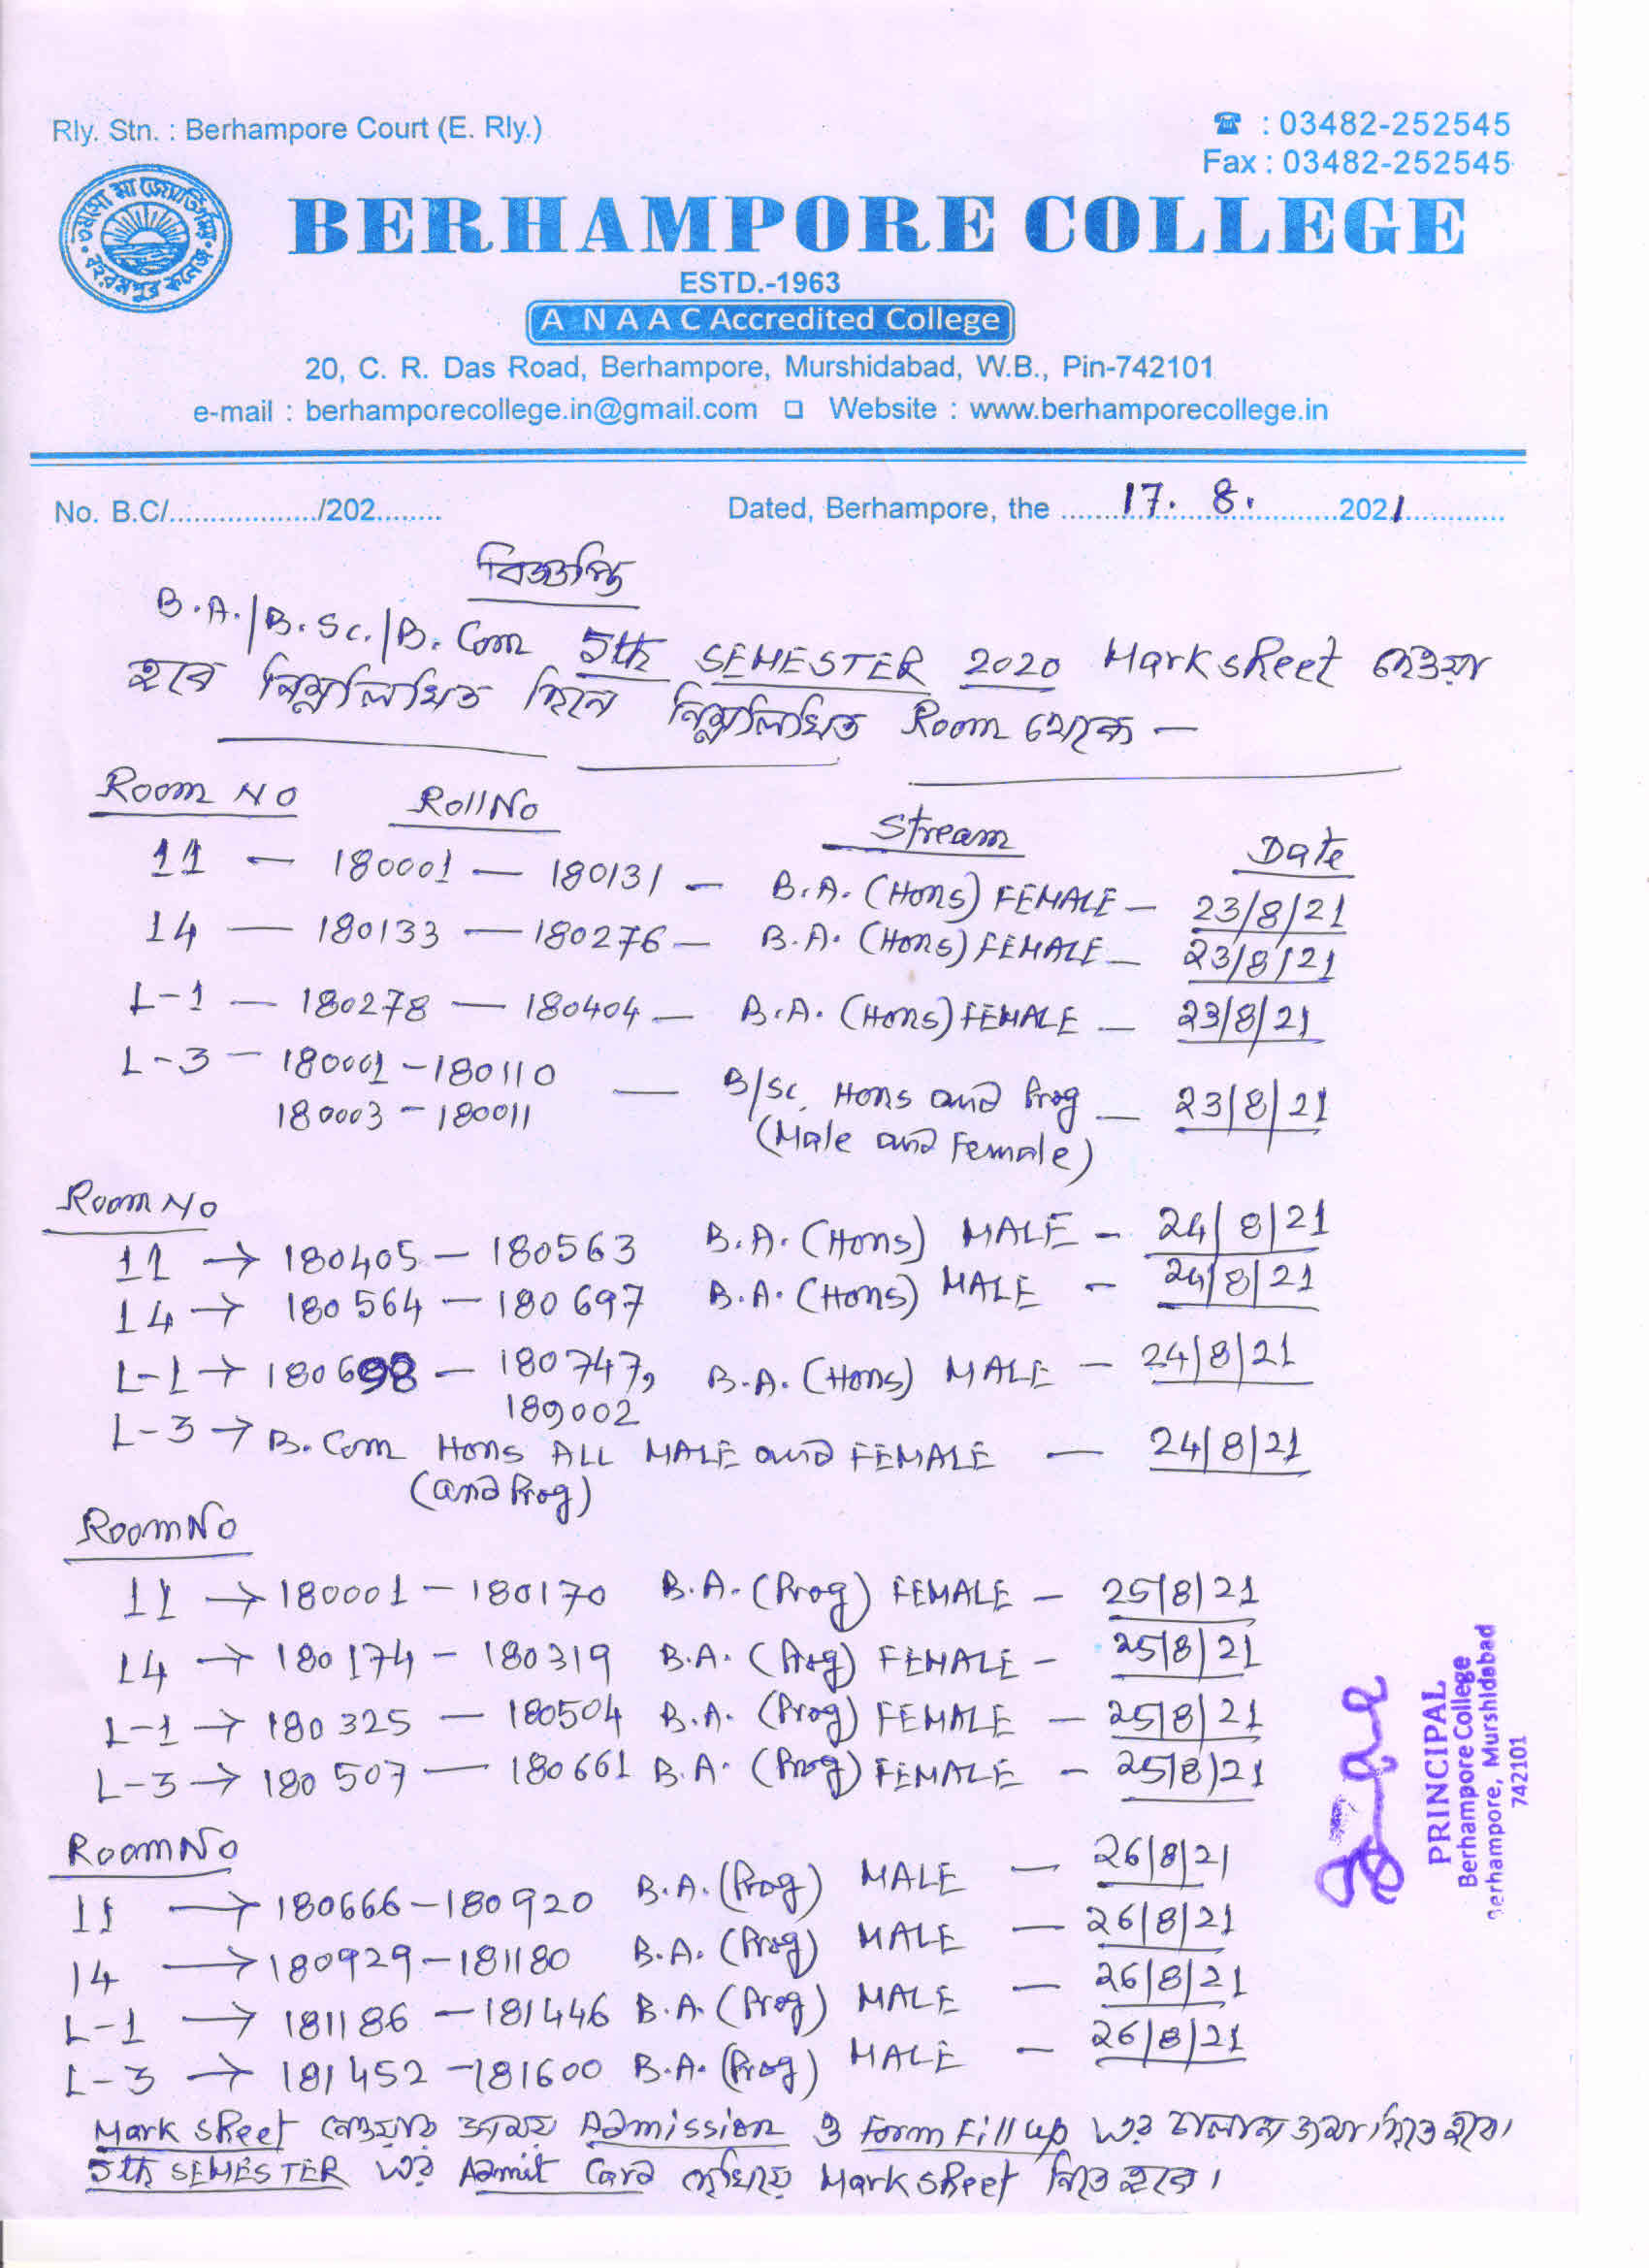 Rly. Stn. : Berhampore Court (E. Rly.)
☎ : 03482-252545
Fax : 03482-252545
তমসো মা জ্যোতির্গময়
বহরমপুর কলেজ
BERHAMPORE COLLEGE
ESTD.-1963
A NAAC Accredited College
20, C. R. Das Road, Berhampore, Murshidabad, W.B., Pin-742101
e-mail : berhamporecollege.in@gmail.com ❑ Website : www.berhamporecollege.in
No. B.C/.................../202........ Dated, Berhampore, the ........17. 8. ...........2021.............
বিজ্ঞপ্তি
B.A./B.Sc./B.Com 5th SEMESTER 2020 Marksheet দেওয়া
হবে নিম্নলিখিত দিনে নিম্নলিখিত Room থেকে —
Room No Roll No Stream Date
11 — 180001 — 180131 — B.A. (Hons) FEMALE — 23/8/21
14 — 180133 — 180276 — B.A. (Hons) FEMALE — 23/8/21
L-1 — 180278 — 180404 — B.A. (Hons) FEMALE — 23/8/21
L-3 — 180001 - 180110 — B/Sc. Hons and Prog — 23/8/21
180003 - 180011 (Male and Female)
Room No
11 → 180405 - 180563 B.A. (Hons) MALE - 24/8/21
14 → 180564 - 180697 B.A. (Hons) MALE - 24/8/21
L-1 → 180698 - 180747, B.A. (Hons) MALE - 24/8/21
189002
L-3 → B.Com Hons ALL MALE and FEMALE — 24/8/21
(and Prog)
Room No
11 → 180001 - 180170 B.A. (Prog) FEMALE - 25/8/21
14 → 180174 - 180319 B.A. (Prog) FEMALE - 25/8/21
L-1 → 180325 - 180504 B.A. (Prog) FEMALE - 25/8/21
L-3 → 180507 — 180661 B.A. (Prog) FEMALE - 25/8/21
Room No
11 → 180666 - 180920 B.A. (Prog) MALE — 26/8/21
14 → 180929 - 181180 B.A. (Prog) MALE — 26/8/21
L-1 → 181186 - 181446 B.A. (Prog) MALE — 26/8/21
L-3 → 181452 - 181600 B.A. (Prog) MALE — 26/8/21
Mark sheet নেওয়ার সময় Admission ও Form Fill up এর চালান জমা দিতে হবে।
5th SEMESTER এর Admit Card দেখিয়ে Marksheet নিতে হবে।
PRINCIPAL
Berhampore College
Berhampore, Murshidabad
742101